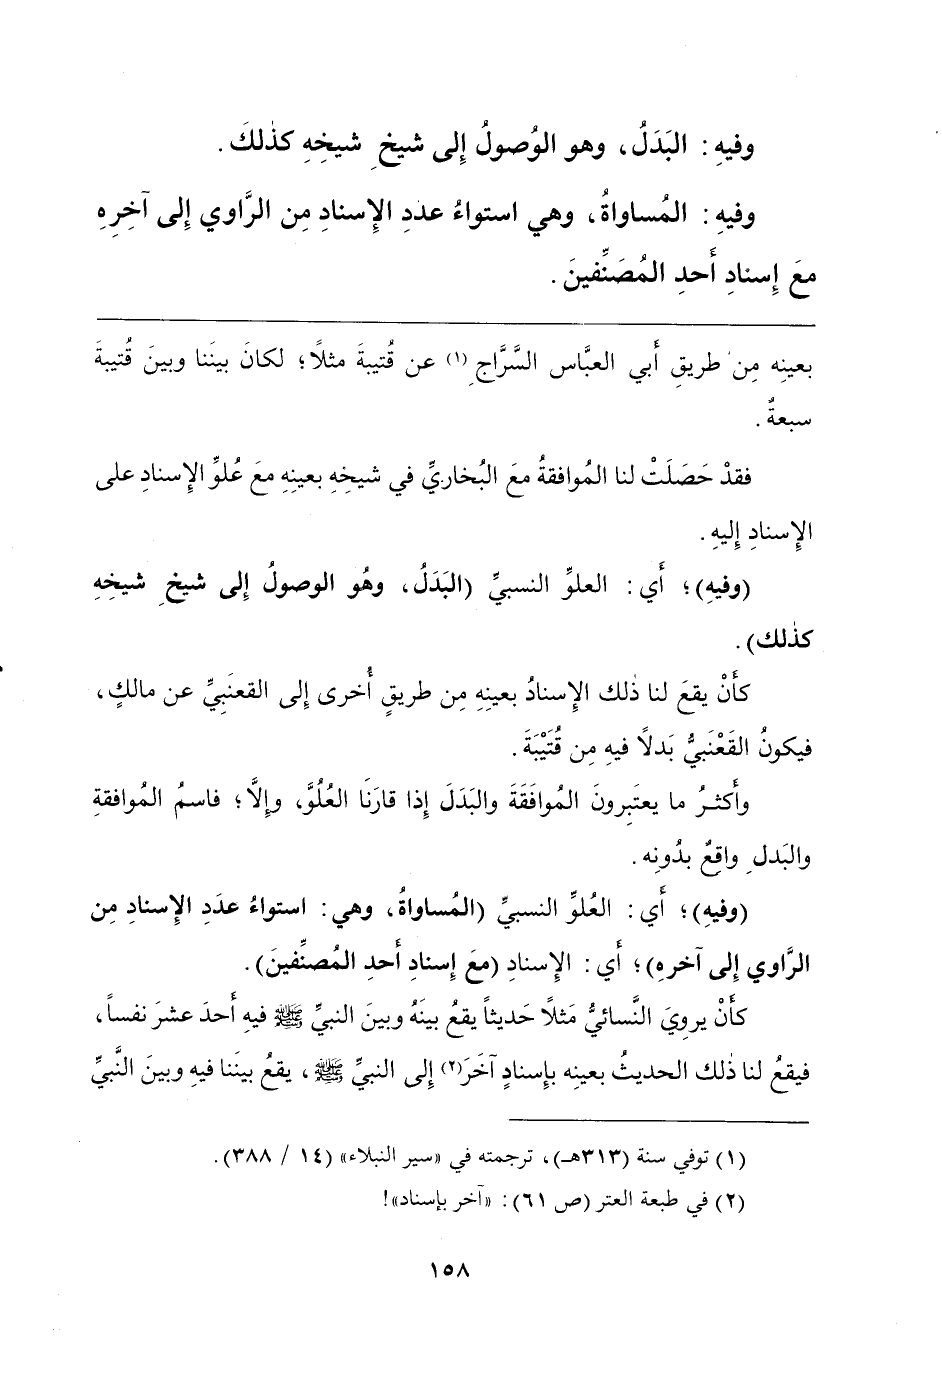 وفيهِ : البَدَلُ ، وهو الوُصولُ إِلى شيخِ شيخِهِ كذٰلكَ .
وفيهِ : المُساواةُ ، وهي استواءُ عددِ الإِسنادِ مِن الرَّاوي إِلى آخِرِهِ
معَ إِسنادِ أَحدِ المُصَنِّفينَ .
بعينِه مِن طريقِ أَبي العبَّاس السَّرَّاجِ (١) عن قُتيبةَ مثلًا ؛ لكانَ بينَنا وبينَ قُتيبةَ
سبعةٌ .
فقدْ حَصَلَتْ لنا المُوافقةُ معَ البُخاريِّ في شيخِه بعينِهِ معَ عُلوِّ الإِسنادِ على
الإِسنادِ إِليهِ .
(وفيهِ) ؛ أَي : العلوِّ النسبيِّ (البَدَلُ ، وهُو الوصولُ إِلى شيخِ شيخِهِ
كذلك) .
كأَنْ يقعَ لنا ذٰلك الإِسنادُ بعينِهِ مِن طريقٍ أُخرى إِلى القعنَبيِّ عن مالكٍ ،
فيكونُ القَعْنَبيُّ بَدلًا فيهِ مِن قُتَيْبَةَ .
وأَكثرُ ما يعتَبِرونَ المُوافَقَةَ والبَدَلَ إِذا قارَنَا العُلُوَّ ، وإِلَّا ؛ فاسمُ المُوافقةِ
والبَدلِ واقعٌ بدُونِه .
(وفيهِ) ؛ أَي : العُلوِّ النسبيِّ (المُساواةُ ، وهي : استواءُ عدَدِ الإِسنادِ مِن
الرَّاوي إِلى آخرِه) ؛ أَي : الإِسنادِ (معَ إِسنادِ أَحدِ المُصنِّفينَ) .
كأَنْ يرويَ النَّسائيُّ مَثلًا حَديثاً يقعُ بينَهُ وبينَ النبيِّ ﷺ فيهِ أَحدَ عشرَ نفساً ،
فيقعُ لنا ذٰلك الحديثُ بعينِه بإِسنادٍ آخَرَ (٢) إِلى النبيِّ ﷺ ، يقعُ بينَنا فيهِ وبينَ النَّبيِّ
(١) توفي سنة (٣١٣هـ) ، ترجمته في «سير النبلاء» (١٤ / ٣٨٨) .
(٢) في طبعة العتر (ص ٦١) : «آخر بإسناد» !
١٥٨